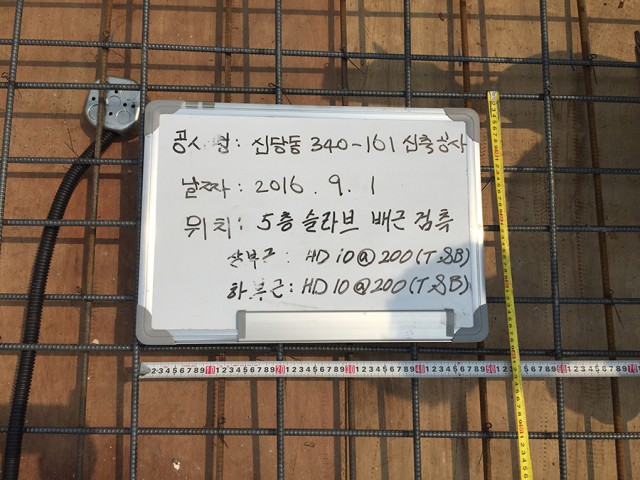 공사명: 신당동 340-161 신축공사
날짜: 2016. 9. 1
위치: 5층 슬라브 배근 검측
상부근: HD 10@200(T&B)
하부근: HD 10@200(T&B)